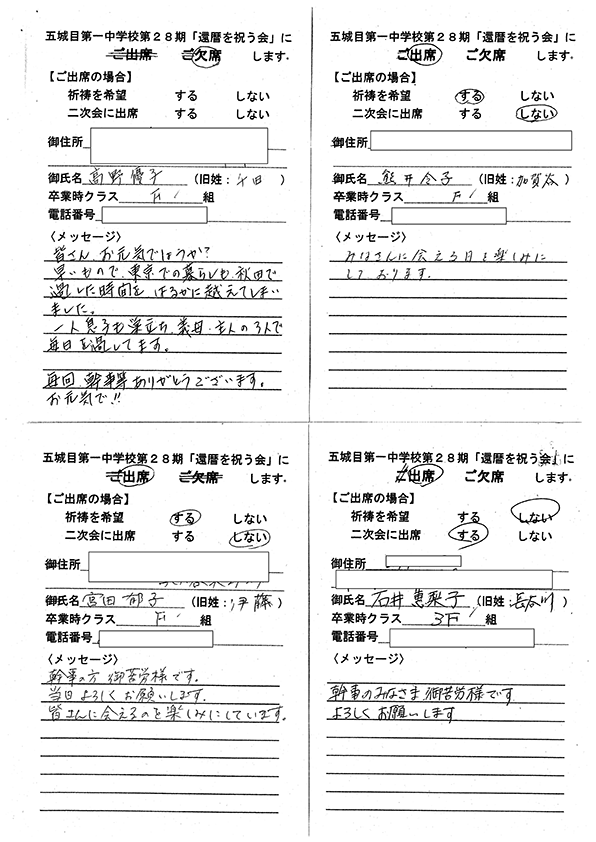 五城目第一中学校第２８期「還暦を祝う会」に
ご出席　ご欠席　します。
【ご出席の場合】
祈祷を希望　する　しない
二次会に出席　する　しない
御住所
御氏名　髙野優子　（旧姓：　）
卒業時クラス　F　組
電話番号
〈メッセージ〉
皆さん、お元気でしょうか？
早いもので、東京での暮らしも、秋田で
過した時間を はるかに越えてしまい
ました。
一人息子も巣立ち、義母、主人の3人で
毎日を過してます。
毎回、幹事等ありがとうございます。
お元気で!!
五城目第一中学校第２８期「還暦を祝う会」に
ご出席　ご欠席　します。
【ご出席の場合】
祈祷を希望　する　しない
二次会に出席　する　しない
御住所
御氏名　熊井令子　（旧姓：加賀谷）
卒業時クラス　F　組
電話番号
〈メッセージ〉
みなさんに会える日を楽しみに
しております。
五城目第一中学校第２８期「還暦を祝う会」に
ご出席　ご欠席　します。
【ご出席の場合】
祈祷を希望　する　しない
二次会に出席　する　しない
御住所
御氏名　宮田郁子　（旧姓：伊藤）
卒業時クラス　F　組
電話番号
〈メッセージ〉
幹事の方 御苦労様です。
当日よろしくお願いします。
皆さんに会えるのを楽しみにしています。
五城目第一中学校第２８期「還暦を祝う会」に
ご出席　ご欠席　します。
【ご出席の場合】
祈祷を希望　する　しない
二次会に出席　する　しない
御住所
御氏名　石井恵梨子　（旧姓：長谷川）
卒業時クラス　3F　組
電話番号
〈メッセージ〉
幹事のみなさま御苦労様です
よろしくお願いします